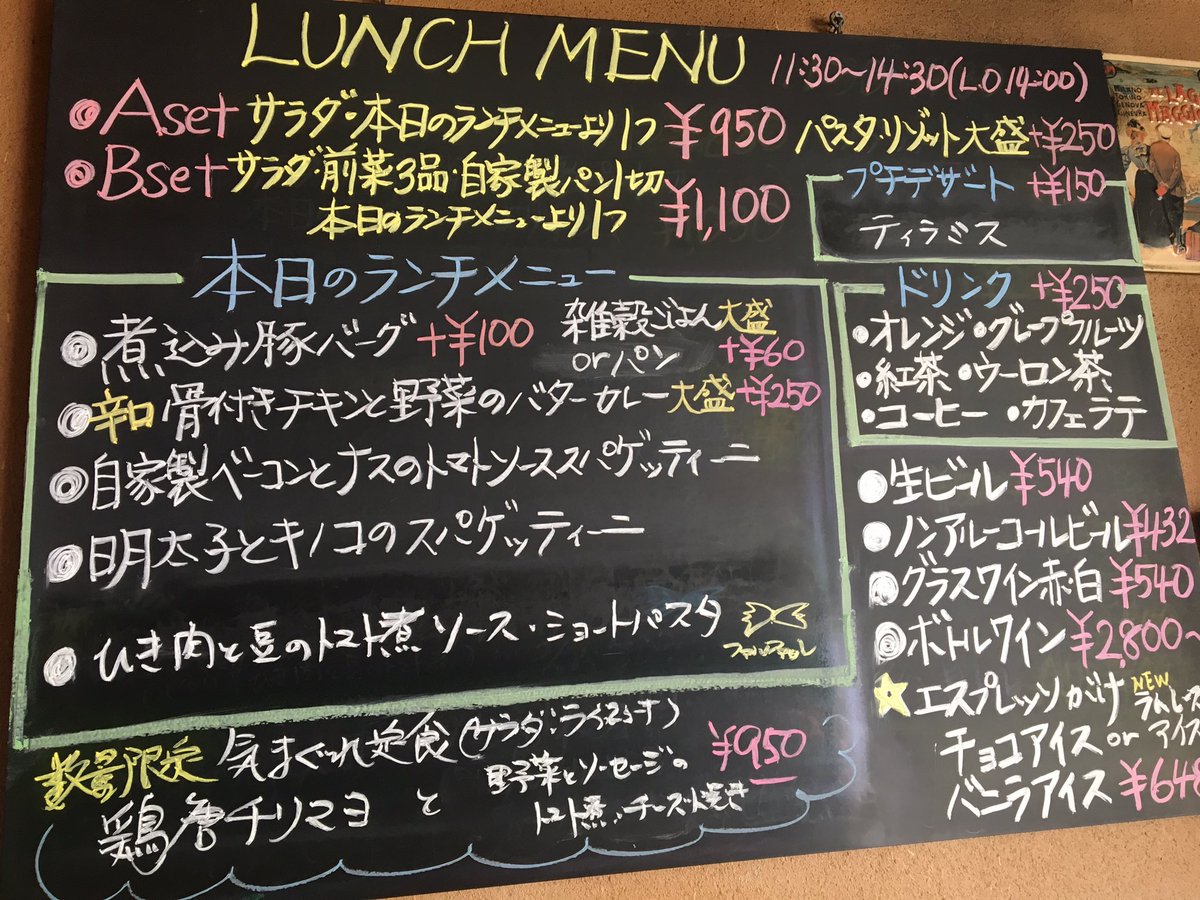 LUNCH MENU
11:30~14:30(L.O 14:00)
Aset サラダ・本日のランチメニューより1つ ¥950
Bset サラダ・前菜3品・自家製パン1切
本日のランチメニューより1つ ¥1,100
パスタ・リゾット大盛+¥250
プチデザート +¥150
ティラミス
本日のランチメニュー
煮込み豚バーグ+¥100
雑穀ごはん大盛
orパン +¥60
辛口骨付きチキンと野菜のバターカレー大盛+¥250
自家製ベーコンとナスのトマトソーススパゲッティーニ
明太子とキノコのスパゲッティーニ
ひき肉と豆のトマト煮ソース・ショートパスタ
ドリンク +¥250
・オレンジ・グレープフルーツ
・紅茶・ウーロン茶
・コーヒー ・カフェラテ
生ビール ¥540
ノンアルーコールビール¥432
グラスワイン赤・白 ¥540
ボトルワイン¥2,800~
エスプレッソがけ NEW
チョコアイス or アイス
バニラアイス ¥648
数量限定 気まぐれ定食(サラダ・ライス付) ¥950
鶏唐チリマヨ と 野菜とソーセージの
トマト煮・チーズ焼き
MILANO
TORINO
GENOVA
LAGO
MAGGIORE